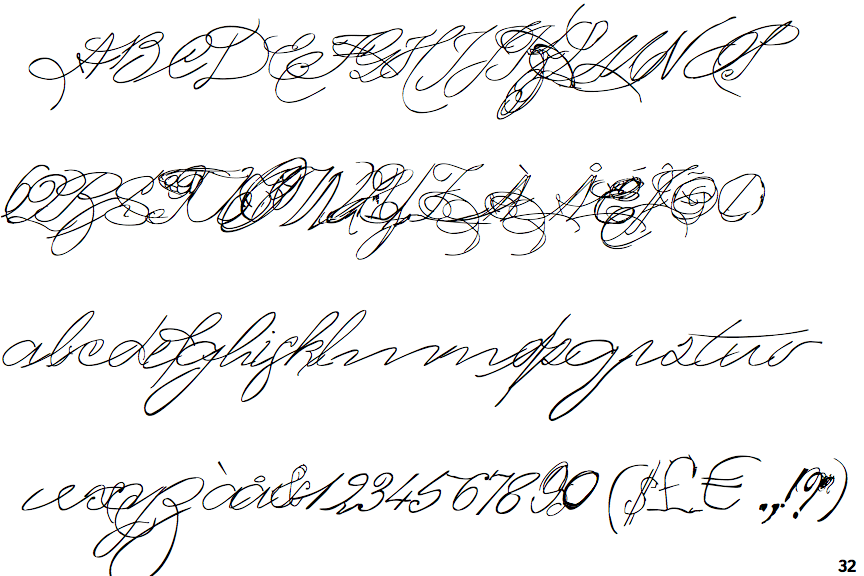 ABCDEFGHIJKLMNOP
QRSTUVWXYZÀÅÉÎÕØ
abcdefghijklmnopqrstuv
wxyzàå&1234567890($£€.,!?)
32